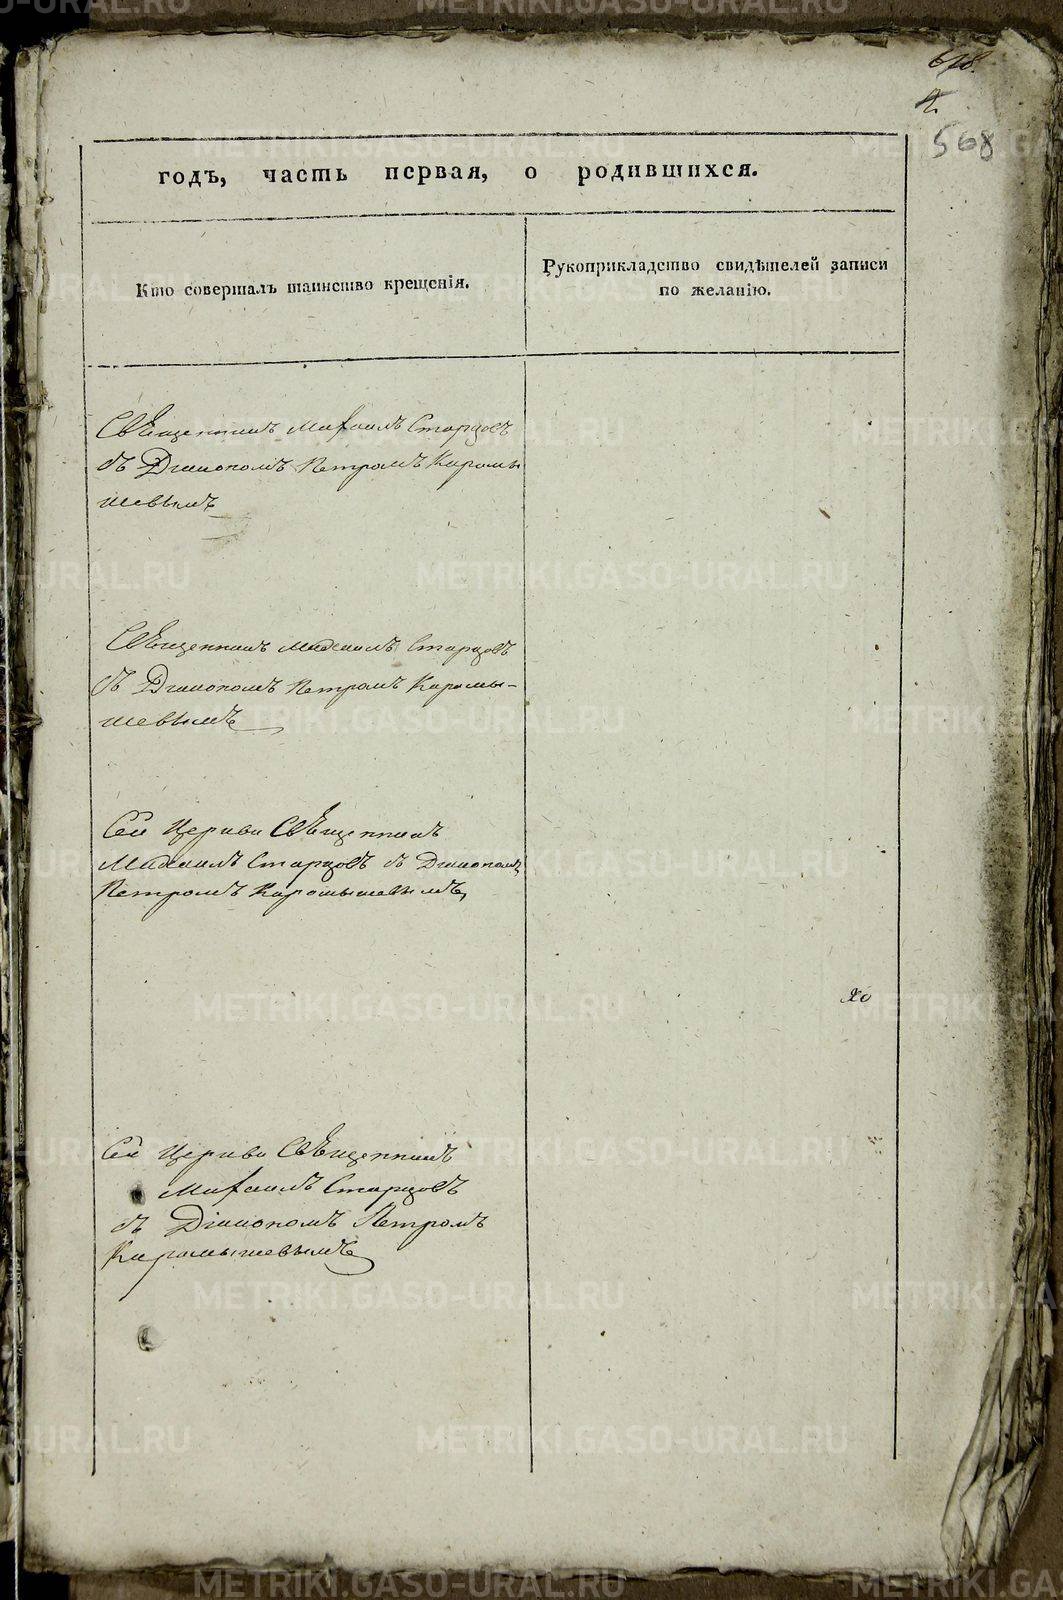 568
годъ, часть первая, о родившихся.
Кто совершалъ таинство крещенія.
Рукоприкладство свидѣтелей записи
по желанію.
Священникъ Михаилъ Старцовъ
съ Діакономъ Петромъ Карамы
шевымъ
Священникъ Михаилъ Старцовъ
съ Діакономъ Петромъ Карамы-
шевымъ
Сей Церкви Священникъ
Михаилъ Старцовъ съ Діакономъ
Петромъ Карамышевымъ
Сей Церкви Священникъ
Михаилъ Старцовъ
съ Діакономъ Петромъ
Карамышевымъ
METRIKI.GASO-URAL.RU